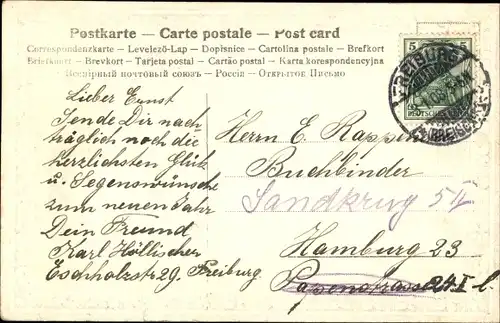 Postkarte – Carte postale – Post card
Correspondenzkarte – Levelező-Lap – Dopisnice – Cartolina postale – Brefkort
Briefkaart – Brevkort – Tarjeta postal – Cartão postal – Karta korespondencyjna
Всемірный почтовый союзъ – Россія – Открытое Письмо
5 5
FREIBURG
DEUTSCHES
(BREISGAU)
Lieber Ernst
Sende Dir nach-
träglich noch die
herzlichsten Glück
u. Segenswünsche
zum neuen Jahr
Dein Freund
Karl Höllischer
Eschholzstr 29. Freiburg
Herrn E. Rappen
Buchbinder
Sandkrug 54
Hamburg 23
Papenstrasse 24 I l.